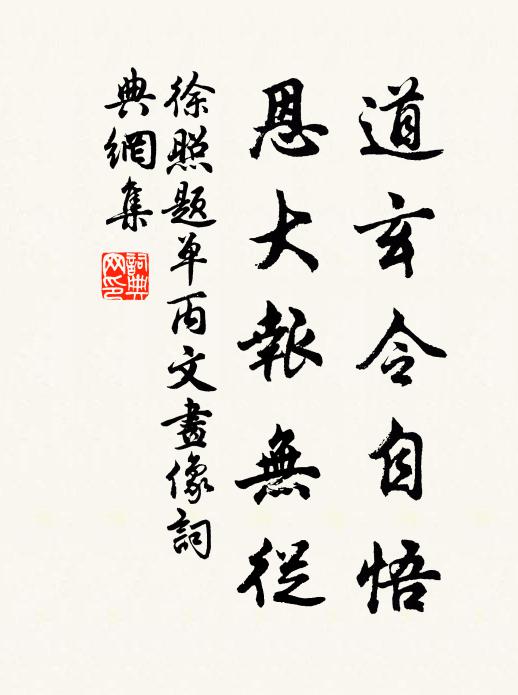 道玄令自悟
恩大報無從
徐照題单丙文畫像詞
典網集
詞典网印